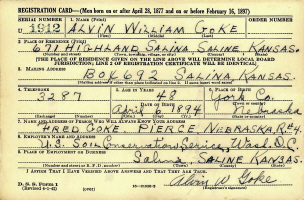 REGISTRATION CARD—(Men born on or after April 28, 1877 and on or before February 16, 1897)
SERIAL NUMBER 1. NAME (Print) ORDER NUMBER
U 1919 ALVIN WILLIAM GOKE
(First) (Middle) (Last)
2. PLACE OF RESIDENCE (Print)
671 HIGHLAND SALINA, SALINE, KANSAS.
(Number and street) (Town, township, village, or city) (County) (State)
[THE PLACE OF RESIDENCE GIVEN ON THE LINE ABOVE WILL DETERMINE LOCAL BOARD
JURISDICTION; LINE 2 OF REGISTRATION CERTIFICATE WILL BE IDENTICAL]
3. MAILING ADDRESS
BOX 692 SALINA KANSAS.
4. TELEPHONE 5. AGE IN YEARS 6. PLACE OF BIRTH
3287 48 York Co.
DATE OF BIRTH (Town or county)
April 1894
(Mo.) (Day) (Yr.) (State or country)
7. NAME AND ADDRESS OF PERSON WHO WILL ALWAYS KNOW YOUR ADDRESS
FRED GOKE, PIERCE, NEBRASKA, R#4.
8. EMPLOYER'S NAME AND ADDRESS
U.S. Soil Conservation Service, Wash. D.C.
9. PLACE OF EMPLOYMENT OR BUSINESS
Salina, SALINE KANSAS.
(Number and street or R. F. D. number) (Town) (County) (State)
I AFFIRM THAT I HAVE VERIFIED ABOVE ANSWERS AND THAT THEY ARE TRUE.
D. S. S. Form 1
(Revised 4-1-42) (over) Alvin W Goke
(Registrant's signature)